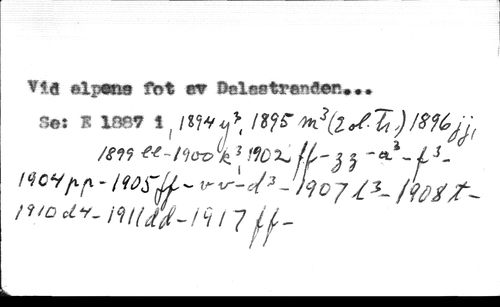 Vid alpens fot av Dalastranden...
Se: E 1887 i, 1894 y³, 1895 m³ (2 ol. tr.) 1896 jj,
1899 ll - 1900 k³, 1902 ff - zz - a³ - f³ -
1904 pp - 1905 ff - vv - d³ - 1907 l³ - 1908 t -
1910 d4 - 1911 dd - 1917 ff -